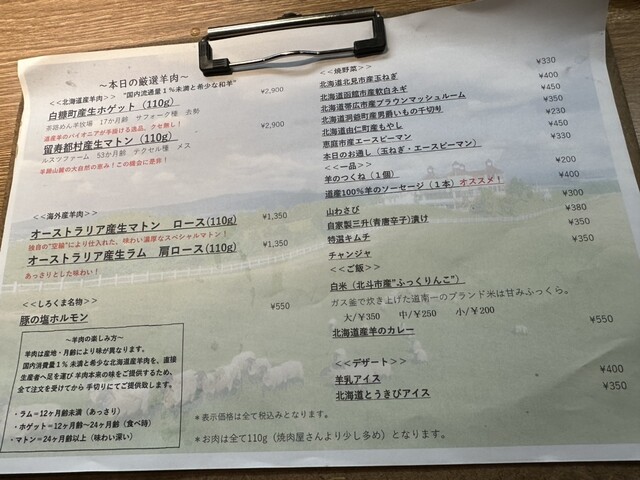 ～本日の厳選羊肉～
<<北海道産羊肉>> "国内流通量１％未満と希少な和羊"
白糠町産生ホゲット（110g） ¥2,900
茶路めん羊牧場 17か月齢 サフォーク種 去勢
道産羊のパイオニアが手掛ける逸品。クセ無し！
留寿都村産生マトン（110g） ¥2,900
ルスツファーム 53か月齢 テクセル種 メス
羊蹄山麓の大自然の恵み！この機会に是非！
<<海外産羊肉>>
オーストラリア産生マトン ロース(110g) ¥1,350
独自の"空輸"により仕入れた、味わい濃厚なスペシャルマトン！
オーストラリア産生ラム 肩ロース(110g) ¥1,350
あっさりとした味わい！
<<しろくま名物>>
豚の塩ホルモン ¥550
～羊肉の楽しみ方～
羊肉は産地・月齢により味が異なります。
国内消費量１％未満と希少な北海道産羊肉を、直接
生産者へ足を運び 羊肉本来の味をご提供するため、
全て注文を受けてから手切りにてご提供致します。
・ラム＝12ヶ月齢未満（あっさり）
・ホゲット＝12ヶ月齢～24ヶ月齢（食べ時）
・マトン＝24ヶ月齢以上（味わい深い）
<<焼野菜>>
北海道北見市産玉ねぎ ¥330
北海道函館市産軟白ネギ ¥400
北海道帯広市産ブラウンマッシュルーム ¥450
北海道洞爺町産男爵いもの千切り ¥350
北海道由仁町産もやし ¥230
恵庭市産エースピーマン ¥450
本日のお通し（玉ねぎ・エースピーマン） ¥330
<<一品>>
羊のつくね（１個） ¥200
道産100％羊のソーセージ（１本）オススメ！ ¥400
山わさび ¥300
自家製三升(青唐辛子)漬け ¥380
特選キムチ ¥350
チャンジャ ¥350
<<ご飯>>
白米（北斗市産"ふっくりんこ"）
ガス釜で炊き上げた道南一のブランド米は甘みふっくら。
大/￥350 中/￥250 小/￥200
北海道産羊のカレー ¥550
<<デザート>>
羊乳アイス ¥400
北海道とうきびアイス ¥350
＊表示価格は全て税込みとなります。
＊お肉は全て110g（焼肉屋さんより少し多め）となります。